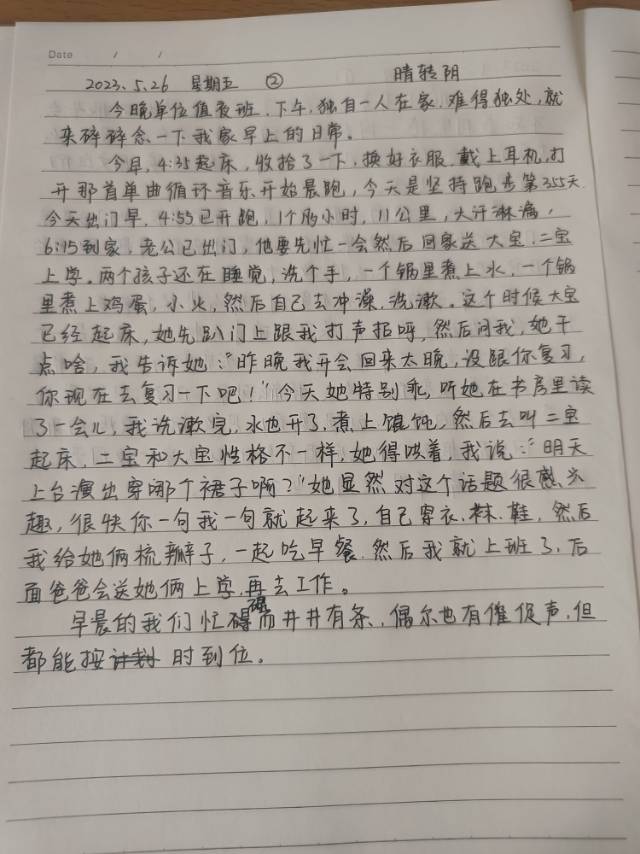 Date / /
2023.5.26 星期五 ② 晴转阴
今晚单位值夜班,下午,独自一人在家,难得独处,就
来碎碎念一下我家早上的日常。
今早,4:35起床,收拾了一下,换好衣服,戴上耳机,打
开那首单曲循环音乐开始晨跑,今天是坚持跑步第355天
今天出门早,4:55已开跑,1个多小时,11公里,大汗淋漓,
6:15到家,老公已出门,他要先忙一会然后回家送大宝、二宝
上学。两个孩子还在睡觉,洗个手,一个锅里煮上水,一个锅
里煮上鸡蛋,小火,然后自己去冲澡,洗漱。这个时候大宝
已经起床,她先趴门上跟我打声招呼,然后问我,她干
点啥,我告诉她:“昨晚我开会回来太晚,没跟你复习,
你现在去复习一下吧!”今天她特别乖,听她在书房里读
了一会儿,我洗漱完,水也开了,煮上馄饨,然后去叫二宝
起床,二宝和大宝性格不一样,她得哄着,我说:“明天
上台演出穿哪个裙子啊?”她显然对这个话题很感兴
趣,很快你一句我一句就起来了,自己穿衣、袜、鞋,然后
我给她俩梳辫子,一起吃早餐,然后我就上班了,后
面爸爸会送她俩上学,再去工作。
早晨的我们忙碌而井井有条,偶尔也有催促声,但
都能按时到位。